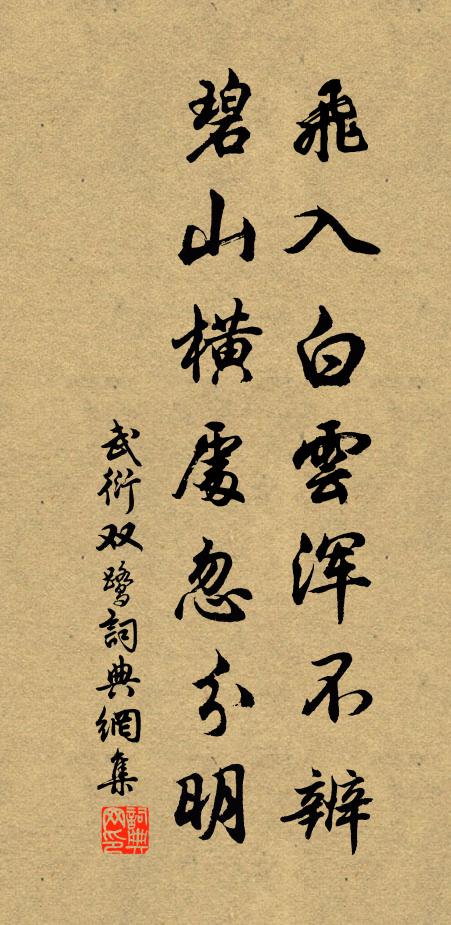 飛入白雲浑不辨
碧山横處忽分明
武衍双鹭詞典網集
詞典网印